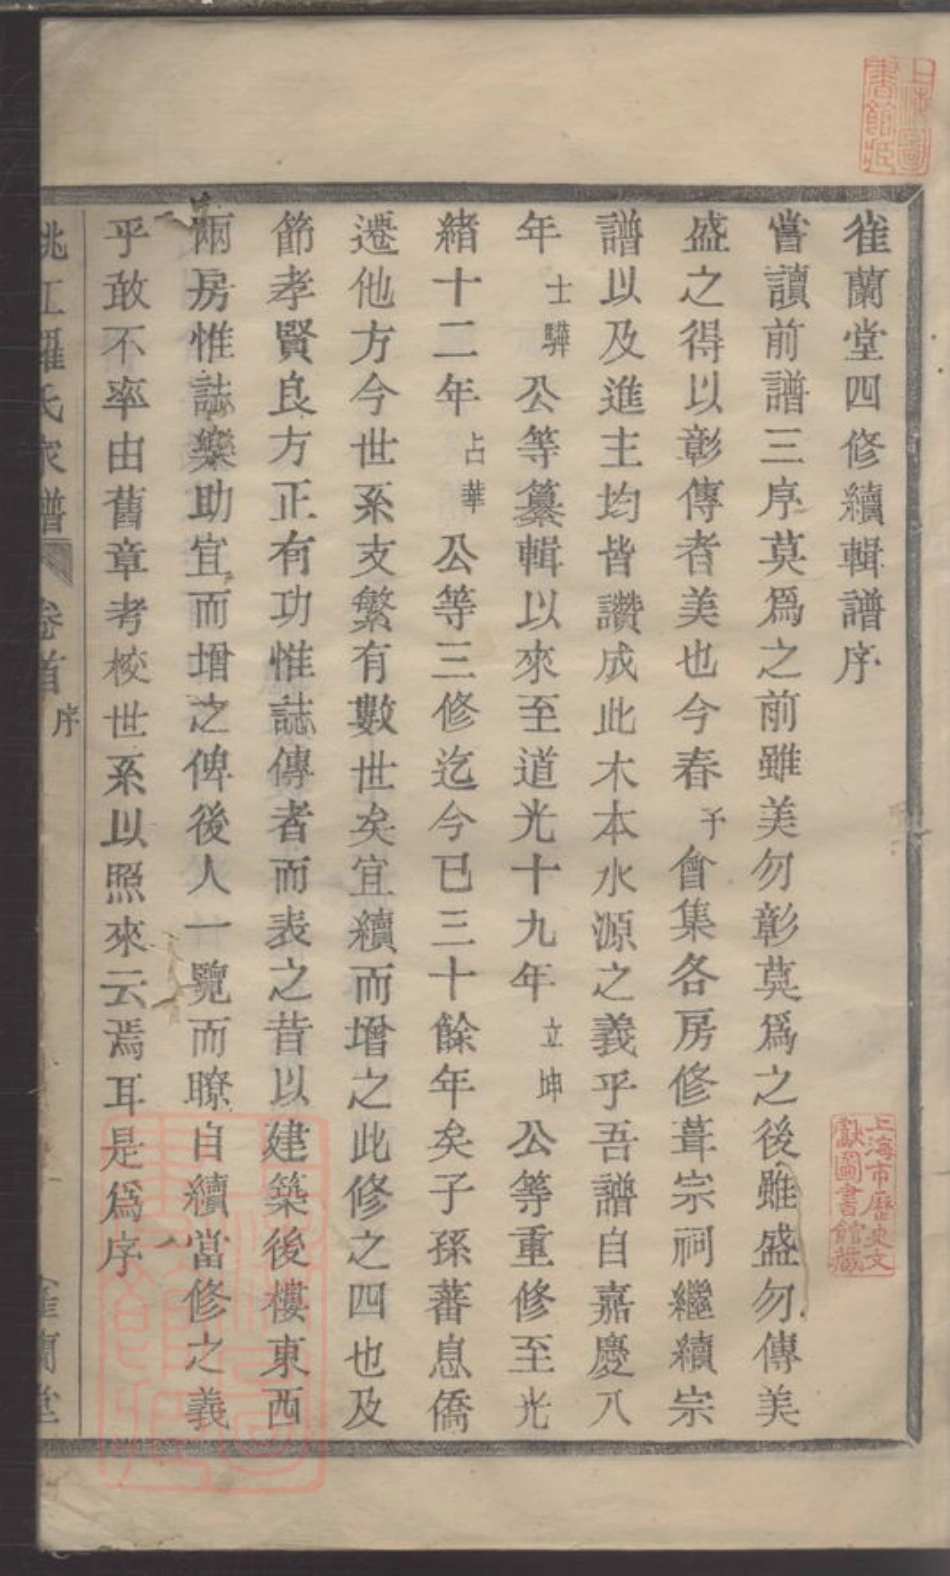 雀蘭堂四修續輯譜序
嘗讀前譜三序莫爲之前雖美勿彰莫爲之後雖盛勿傳美
盛之得以彰傳者美也今春予會集各房修葺宗祠繼續宗
譜以及進主均皆讚成此木本水源之義乎吾譜自嘉慶八
年士驊公等纂輯以來至道光十九年立坤公等重修至光
緒十二年占華公等三修迄今已三十餘年矣子孫蕃息僑
遷他方今世系支繁有數世矣宜續而增之此修之四也及
節孝賢良方正有功惟誌傳者而表之昔以建築後樓東西
兩房惟誌樂助宜而增之俾後人一覽而瞭自續當修之義
乎敢不率由舊章考校世系以照來云焉耳是爲序
姚江羅氏家譜 卷首 序 雀蘭堂
上海市歷史文
獻圖書館藏
上海圖
書館藏